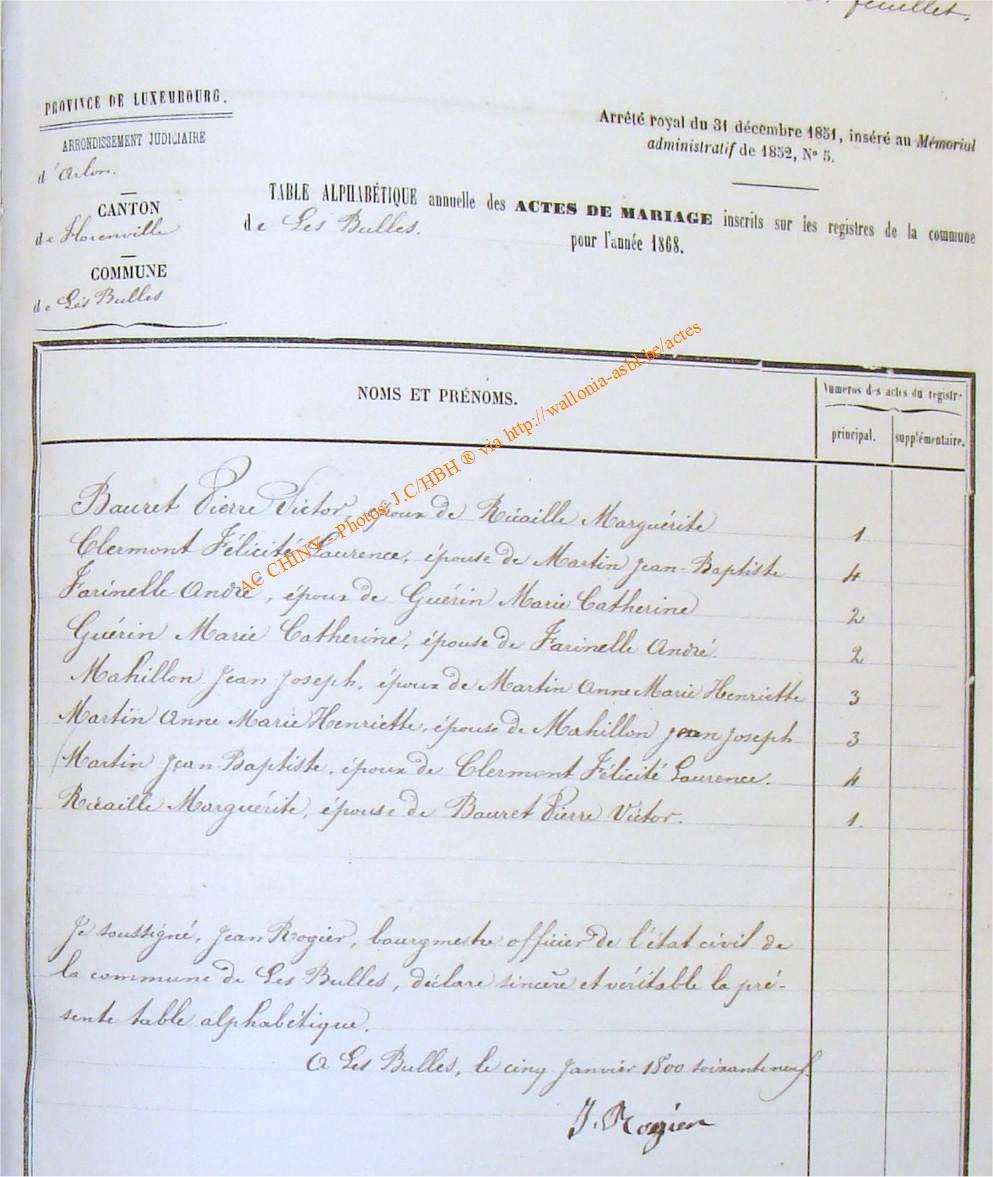 feuillet.
PROVINCE DE LUXEMBOURG.
ARRONDISSEMENT JUDICIAIRE
d'Arlon.
CANTON
de Florenville
COMMUNE
de Les Bulles
Arrêté royal du 31 décembre 1851, inséré au Mémorial
administratif de 1852, No 5.
TABLE ALPHABÉTIQUE annuelle des ACTES DE MARIAGE inscrits sur les registres de la commune
de Les Bulles. pour l'année 1868.
NOMS ET PRÉNOMS.
Numéros des actes du registre
principal. supplémentaire.
Bauret Pierre Victor, époux de Ricaille Marguérite 1
Clermont Félicité Laurence, épouse de Martin Jean-Baptiste 4
Farinelle André, époux de Guérin Marie Catherine 2
Guérin Marie Catherine, épouse de Farinelle André. 2
Mahillon Jean Joseph, époux de Martin Anne Marie Henriette 3
Martin Anne Marie Henriette, épouse de Mahillon Jean Joseph 3
Martin Jean-Baptiste, époux de Clermont Félicité Laurence. 4
Ricaille Marguérite, épouse de Bauret Pierre Victor. 1.
Je soussigné, Jean Rogier, bourgmestre officier de l'état civil de
la commune de Les Bulles, déclare sincère et véritable la pré-
sente table alphabétique.
A Les Bulles, le cinq Janvier 1800 soixante neuf.
J. Rogier
AC CHINY - Photos J.C/HBH ® via http://wallonia-asbl.be/actes